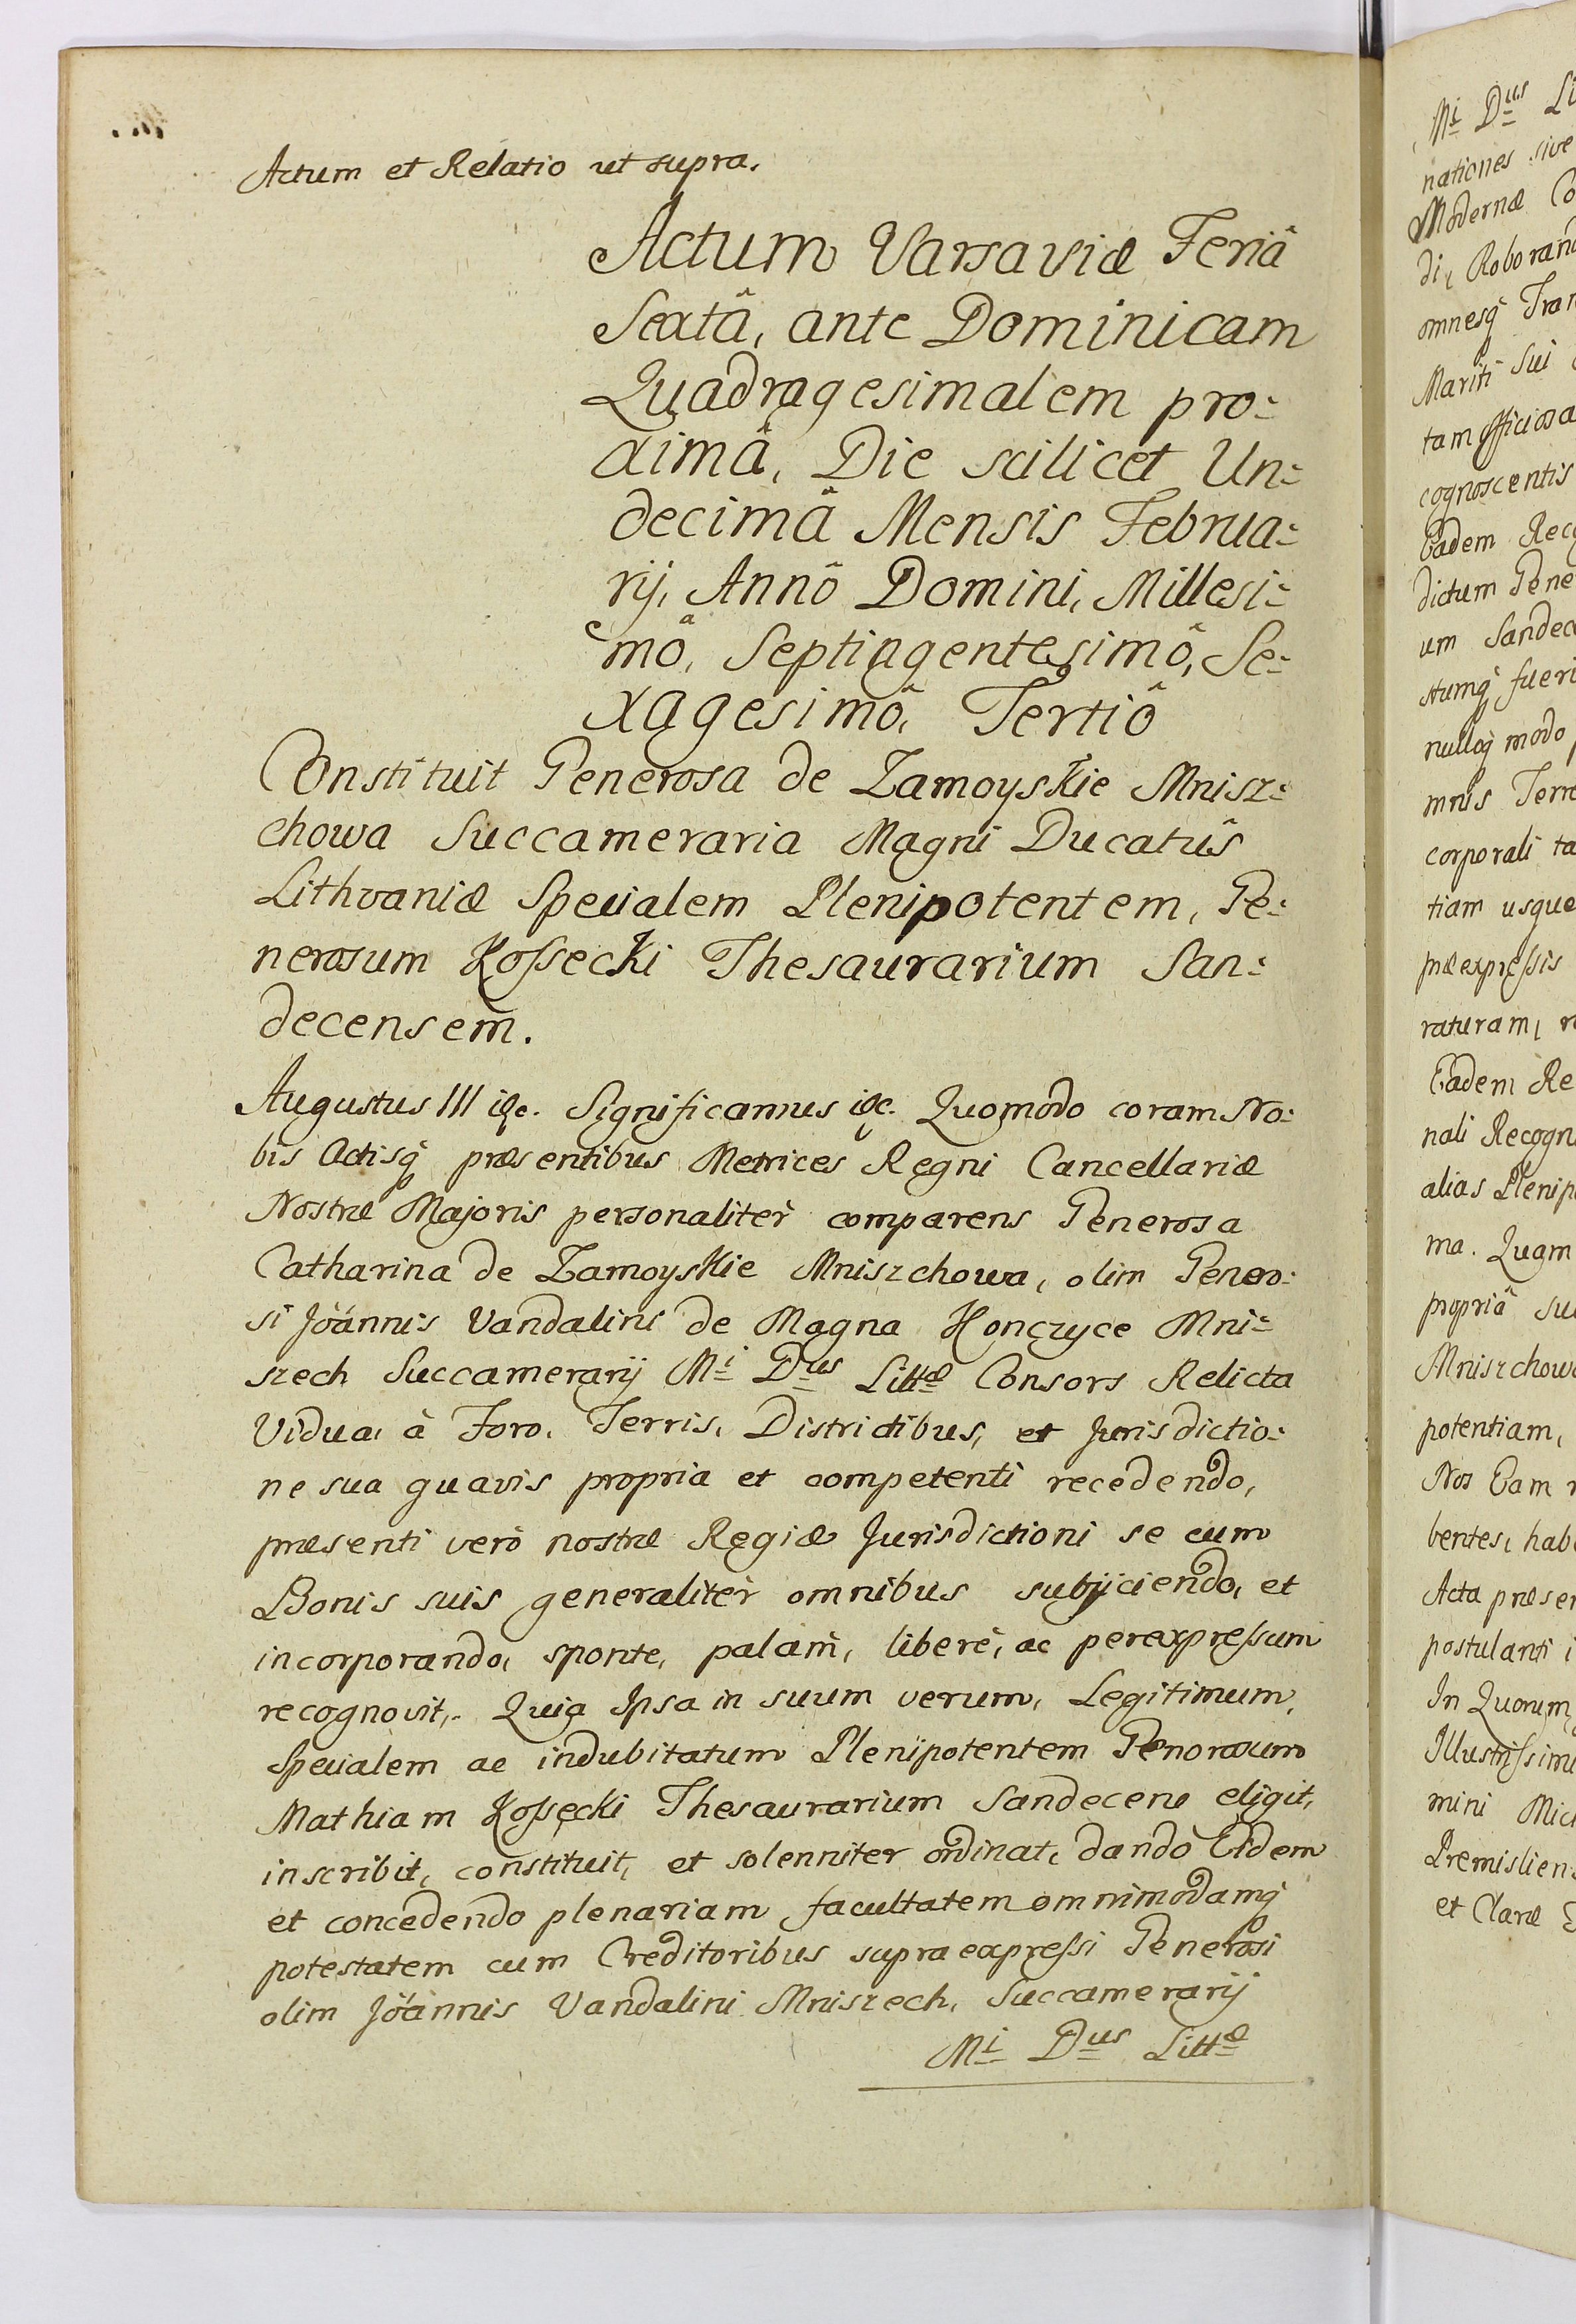 Actum et Relatio ut supra.
Actum Varsaviæ Feriâ
Sextâ, ante Dominicam
Quadragesimalem pro:
ximâ, Die scilicet Un:
decimâ Mensis Februa:
rij, Annô Domini, Millesi:
mô, Septingentesimô, Se:
xagesimô, Tertiô
Constituit Generosa de Zamoyskie Mnisz:
chowa Succameraria Magni Ducatûs
Lithvaniæ Specialem Plenipotentem, Ge:
nerosum Kossecki Thesaurarium San:
decensem.
Augustus III &c. Significamus &c. Quomodo coram No:
bis Actisq præsentibus Metrices Regni Cancellariæ
Nostræ Majoris personalitèr comparens Generosa
Catharina de Zamoyskie Mniszchowa, olim Genero:
si Joannis Vandalini de Magna Konczyce Mni:
szech Succamerarij Mi Dus Littæ Consors Relicta
Vidua, à Foro, Terris, Districtibus, et Jurisdictio:
ne sua quavis propria et competenti recedendo,
præsenti verò nostræ Regiæ Jurisdictioni se cum
Bonis suis generalitèr omnibus subijciendo, et
incorporando, sponte, palàm, liberè, ac perexpressum
recognovit, Quia Ipsa in suum verum, Legitimum,
Specialem ac indubitatum Plenipotentem Generosum
Mathiam Kossecki Thesaurarium Sandecens eligit,
inscribit, constituit, et solenniter ordinat, dando Eidem
et concedendo plenariam facultatem omnimodamq
potestatem cum Creditoribus supraexpressi Generosi
olim Joannis Vandalini Mniszech, Succamerarij
Mi Dus Littæ
Mi Dus Li
nationes sive
Modernæ Co
di, Roborand
omnesq Tran
Mariti Sui
tam officiosa
cognoscentis
Eadem Reco
dictum Gene
um Sandece
stumq fueri
nulloq modo
mnis Terre
corporali ta
tiam usque
præexpressis
raturam,
Eadem Re
nali Recogn
alias Plenip
ma. Quam
propriâ su
Mniszchowa
potentiam,
Nos Eam
bentes, hab
Acta præsen
postulanti i
In Quorum
Illustrissimi
mini Mich
Premislien
et Claræ